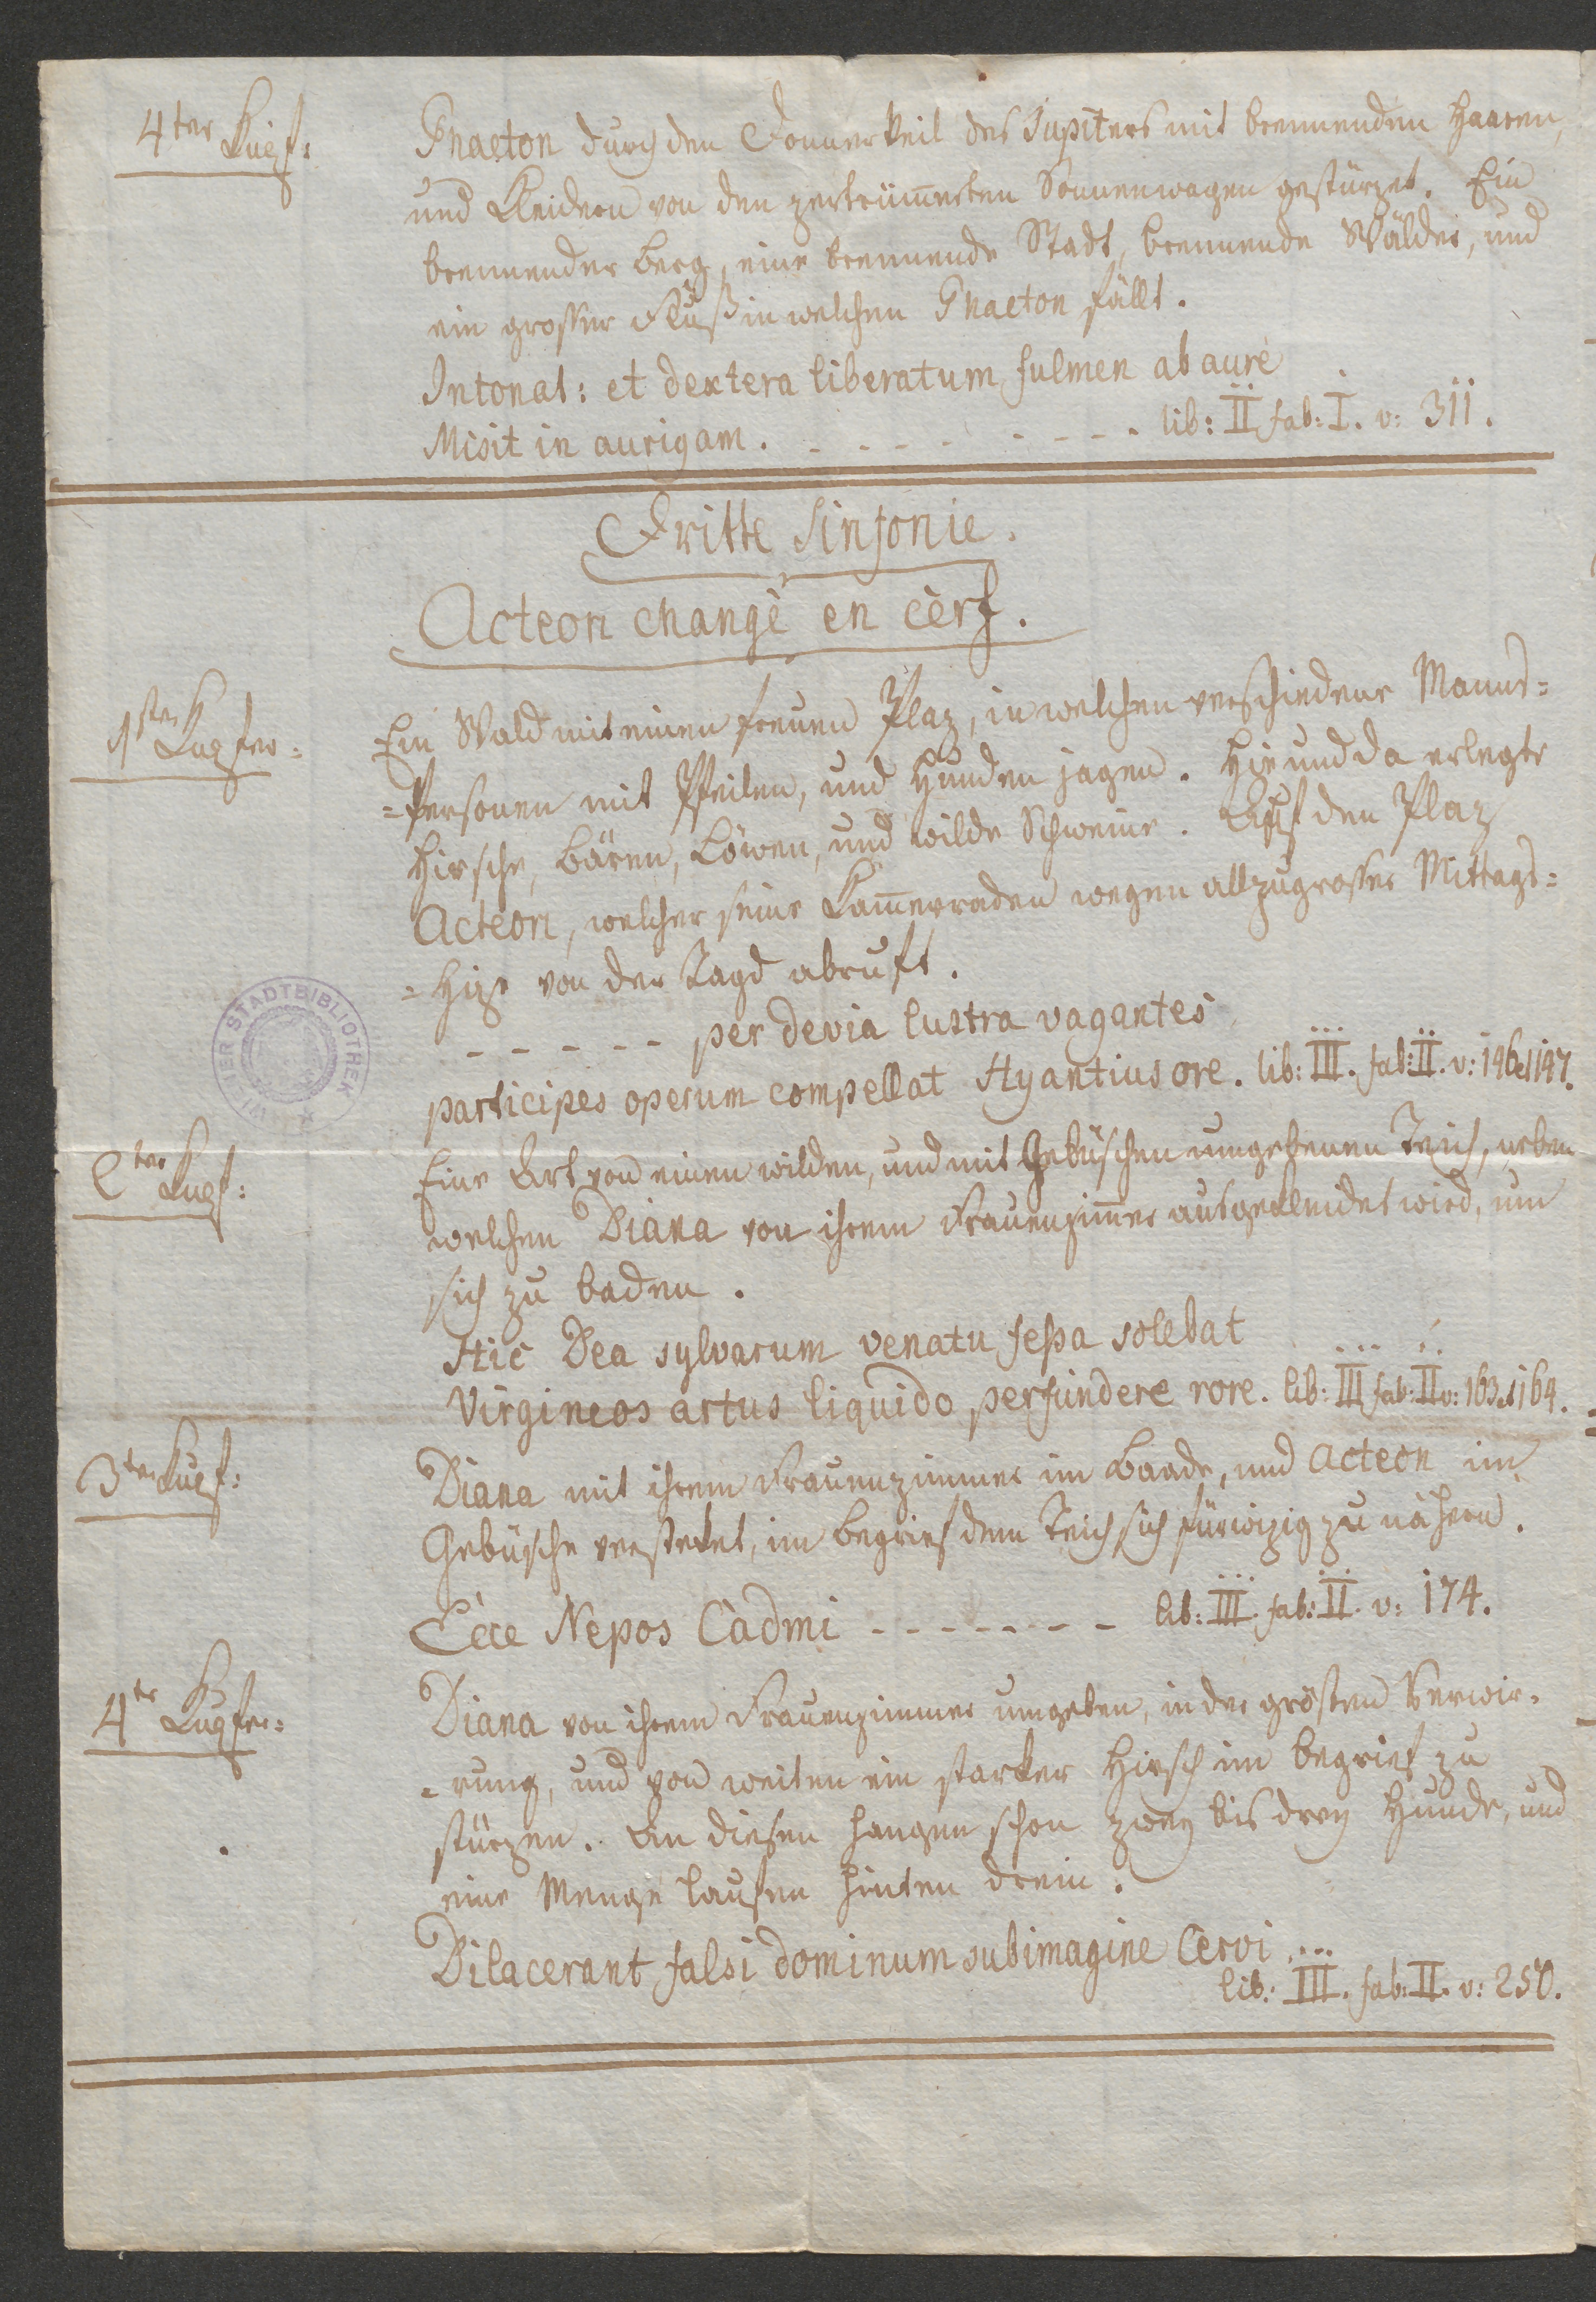 4ter Kupf:
Phaeton durch den Donnerkeil des Jupiters mit brennenden Haaren,
und Kleidern von den zertrüm̅erten Sonnenwagen gestürzet. Ein
brennender Berg, eine brennende Stadt, brennende Wälder, und
ein grosser Fluß in welchen Phaeton fällt.
Intonat: et dextera liberatum fulmen ab aure
Misit in aurigam. - - - - - - - - - lib: II fab: I. v: 311.
Dritte Sinfonie.
Acteon changè en cèrf.
1ster Kupfer:
Ein Wald mit einen freuen Plaz, in welchen verschiedene Manns=
=Personen mit Pfeilen, und Hunden jagen. Hie und da erlegte
Hirsche, Bären, Löwen, und wilde Schweine. Auf den Plaz
Acteon, welcher seine Kam̅erraden wegen allzugrosser Mittags=
=Hize von der Jagd abruft.
- - - - - - per devia lustra vagantes
participes operum compellat Hyantius ore. lib: III. fab: II. v: 146 et 147.
2ter Kupf:
Eine Art von einen wilden, und mit Gebüschen umgebenen Teich, neben
welchen Diana von ihrem Frauenzim̅er ausgekleidet wird, um
sich zu baden.
Hic Dea sylvarum venatu feßa solebat
Virgineos artus liquido perfundere rore. lib: III fab: II v: 163 et 164.
3ter Kupf:
Diana mit ihrem Frauenzimmer im Baade, und Acteon im
Gebüsche verstecket, im begrief dem Teich sich fürwizig zu nähern.
Ecce Nepos Cadmi - - - - - - - lib: III. fab: II. v: 174.
4ter Kupfer:
Diana von ihrem Frauenzimmer umgeben, in der grösten Verwir=
=rung, und von weiten ein starker Hirsch im begrief zu
stürzen. An diesen hangen schon zwey bis drey Hunde, und
eine Menge laufen hinten drein.
Dilacerant falsi dominum sub imagine Cervi
lib: III. fab: II. v: 250.
WIENER STADTBIBLIOTHEK